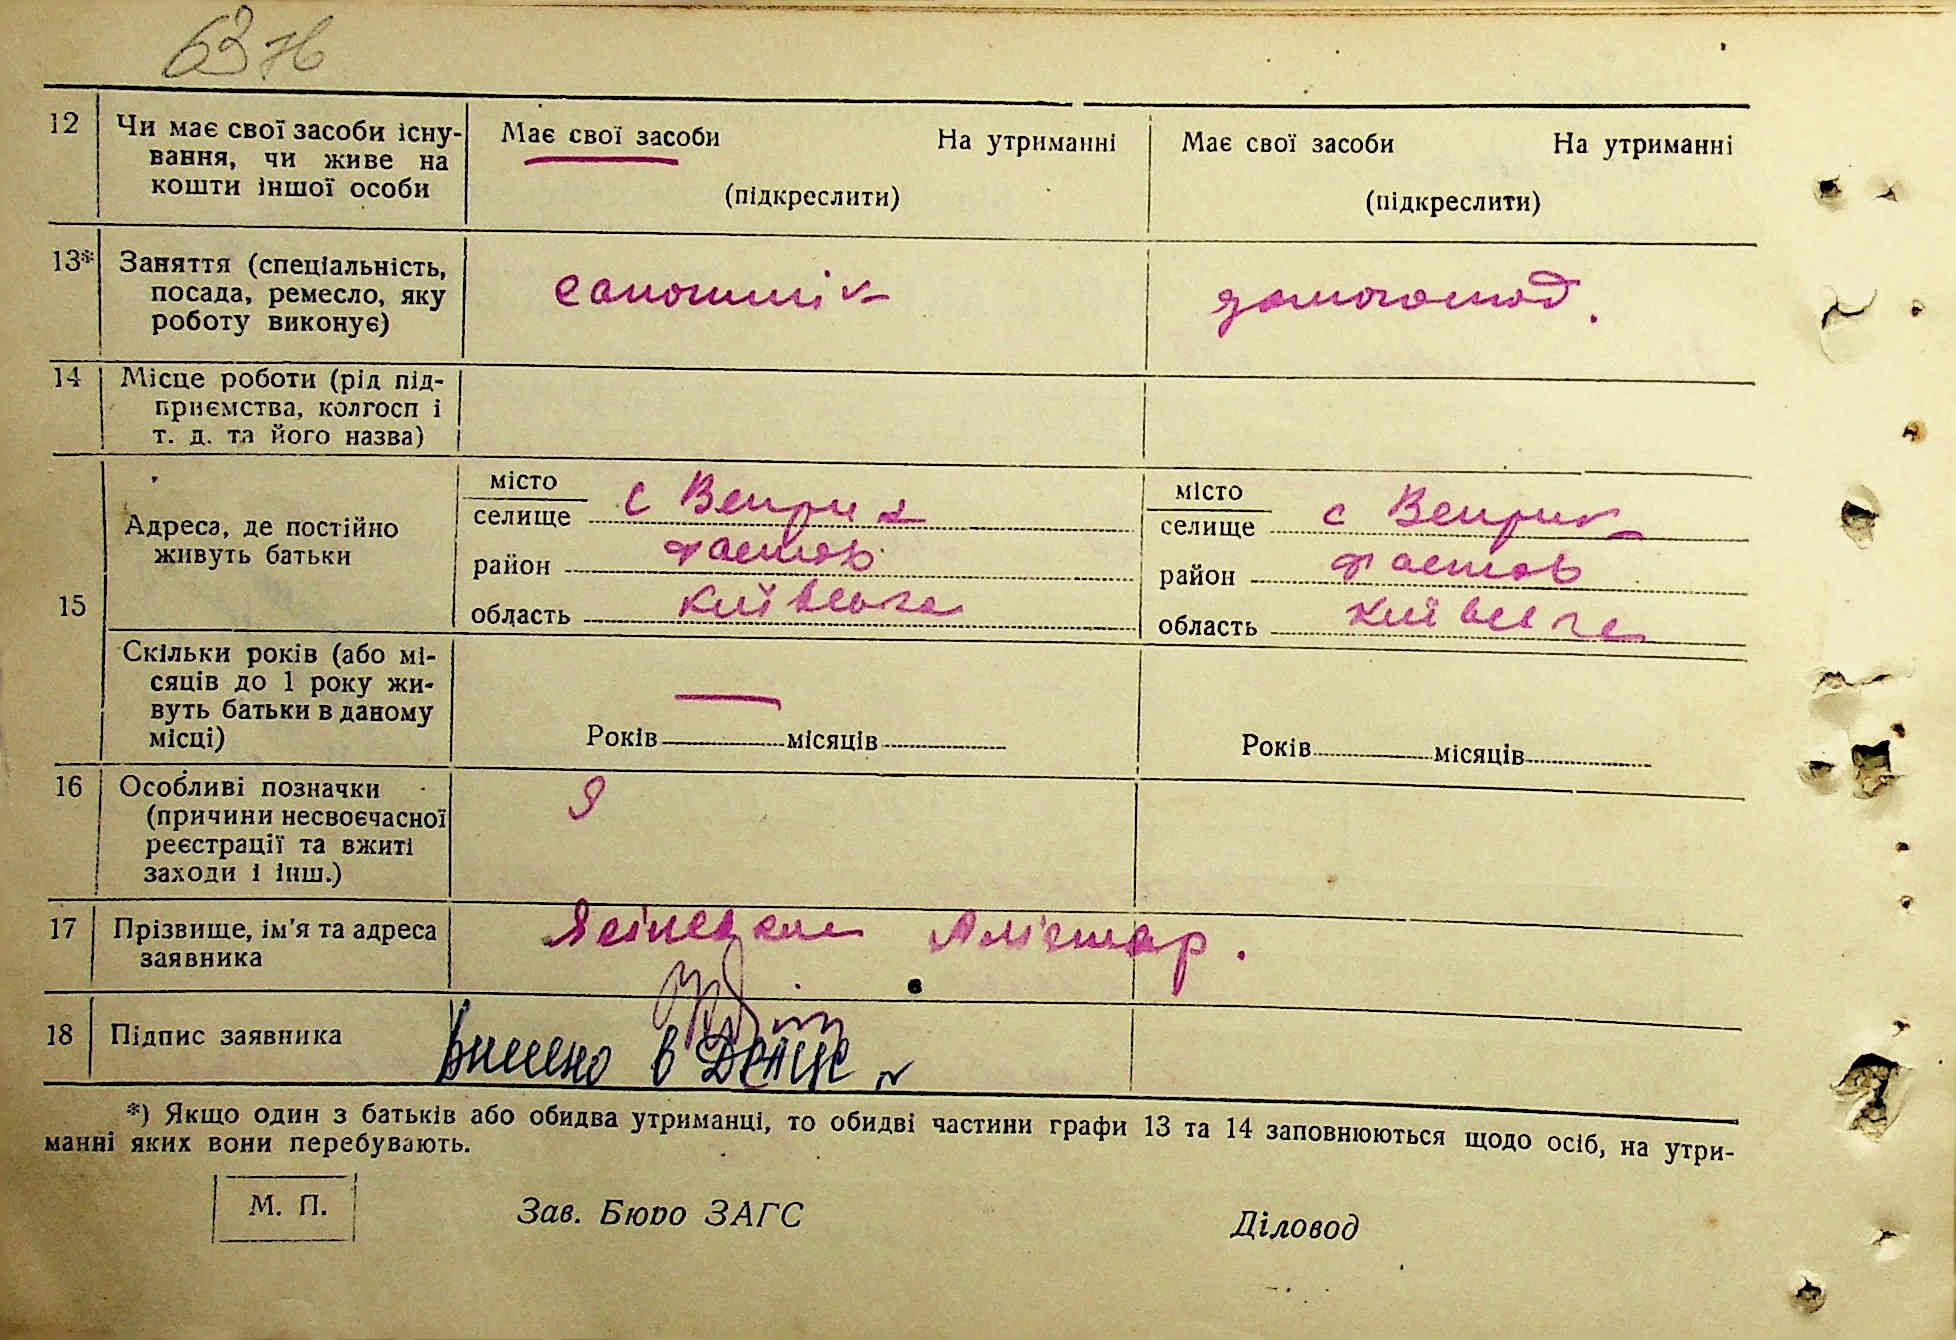 63 зв
12
Чи має свої засоби існу-
вання, чи живе на
кошти іншої особи
Має свої засоби На утриманні
(підкреслити)
Має свої засоби На утриманні
(підкреслити)
13*
Заняття (спеціальність,
посада, ремесло, яку
роботу виконує)
сапошнік
домогоспод.
14
Місце роботи (рід під-
приємства, колгосп і
т. д. та його назва)
15
Адреса, де постійно
живуть батьки
місто
селище с Веприк
район Фастов
область Київська
місто
селище с Веприк
район Фастов
область Київська
Скільки років (або мі-
сяців до 1 року жи-
вуть батьки в даному
місці)
Років місяців
Років місяців
16
Особливі позначки
(причини несвоєчасної
реєстрації та вжиті
заходи і інш.)
Я
17
Прізвище, ім'я та адреса
заявника
18
Підпис заявника
*) Якщо один з батьків або обидва утриманці, то обидві частини графи 13 та 14 заповнюються щодо осіб, на утри-
манні яких вони перебувають.
М. П.
Зав. Бюро ЗАГС
Діловод